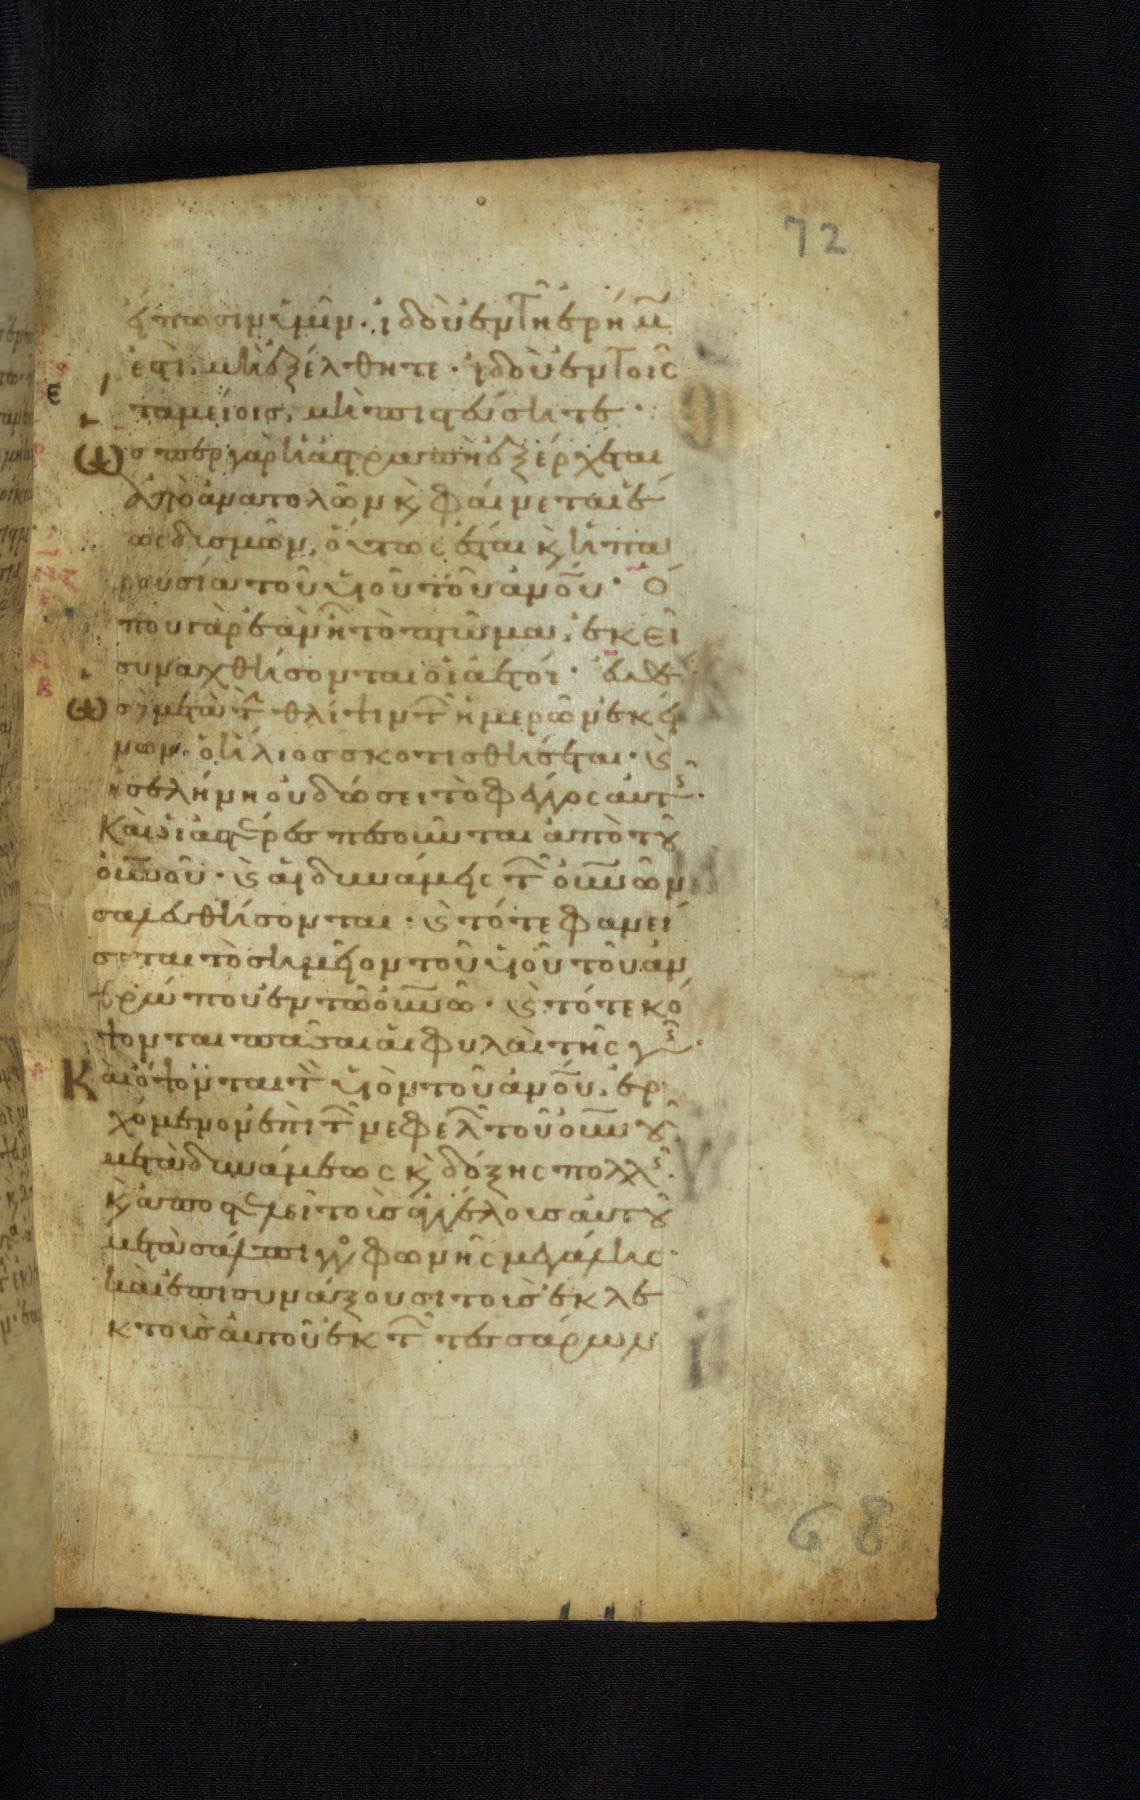 72
είπωσιν ὑμῖν· ἰδοὺ ἐν τῆ ἐρήμ
ἐστὶ, μὴ ἐξέλθητε· ἰδοὺ ἐν τοῖς
ε
ταμείοις, μὴ πιστεύσητε·
Ὥσπερ γὰρ ἡ ἀστραπὴ ἐξέρχεται
ἀπὸ ἀνατολῶν κ φαίνεται ἕ
ως δισμῶν, οὕτως ἔσται κ ἡ πα
ρουσία τοῦ υἱοῦ τοῦ ἀνου· Ὅ
που γὰρ ἐὰν ἦ τὸ πτῶμα, ἐκεῖ
συναχθήσονται οἱ ἀετοί· εὐθ
Ὡσ μετὰ τ θλίψιν τ ἡμερῶν ἐκεί
νων, ὁ ἥλιος σκοτισθήσεται· κ
ἡ σελήνη οὐ δώσει τὸ φέγγος αὐτ
Καὶ οἱ ἀστέρες πεσοῦνται ἀπὸ τοῦ
οὐνοῦ· κ αἱ δυνάμεις τ οὐνῶν
σαλευθήσονται· κ τότε φανεί
σεται τὸ σημεῖον τοῦ υἱοῦ τοῦ ἀν
θρώπου ἐν τῶ οὐνῶ· κ τότε κό
ψονται πᾶσαι αἱ φυλαὶ τῆς γ
Καὶ ὄψονται τ υἱὸν τοῦ ἀνου, ἐρ
χόμενον ἐπὶ τ νεφελ τοῦ οὐνοῦ
μετὰ δυνάμεως κ δόξης πολλ
κ ἀποστελεῖ τοὶς ἀγγέλοις αὐτοῦ
μετὰ σάλπιγγο φωνῆς μεγάλης·
καὶ ἐπισυνάξουσι τοὶς ἐκλε
κτοὶς αὐτοῦ ἐκ τ τεσσάρων
68